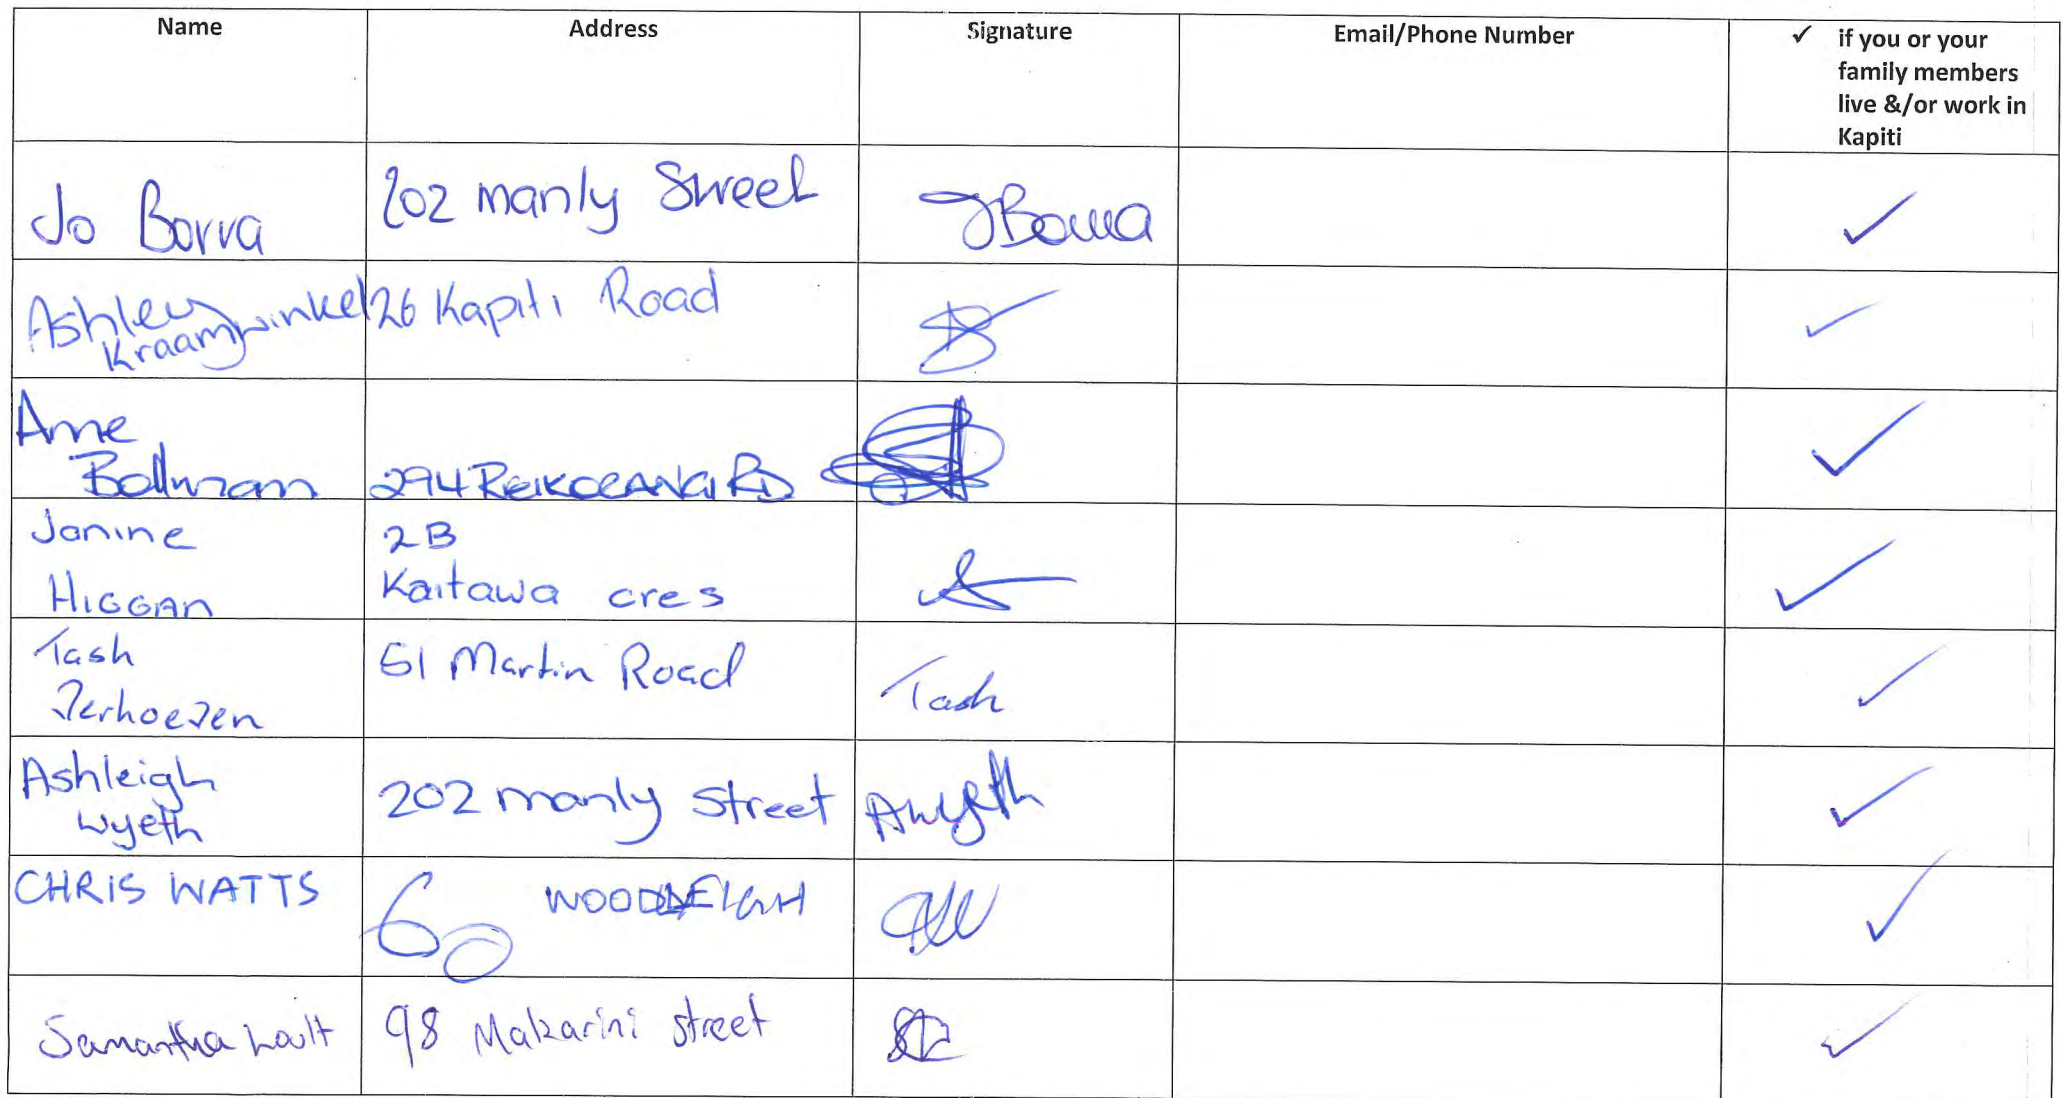 Name Address Signature Email/Phone Number ✓ if you or your
family members
live &/or work in
Kapiti
Jo Borra 202 manly Street JBorra ✓
Ashley Kraamwinkel 26 Kapiti Road ✓
Arne
Bollmann 294 REIKORANGI RD ✓
Janine 2B
HIGGAN Kaitawa cres ✓
Tash 51 Martin Road Tash ✓
Verhoeven
Ashleigh 202 manly street AWyeth ✓
Wyeth
CHRIS WATTS 60 WOODLEIGH ✓
Samantha 98 Makarini street ✓